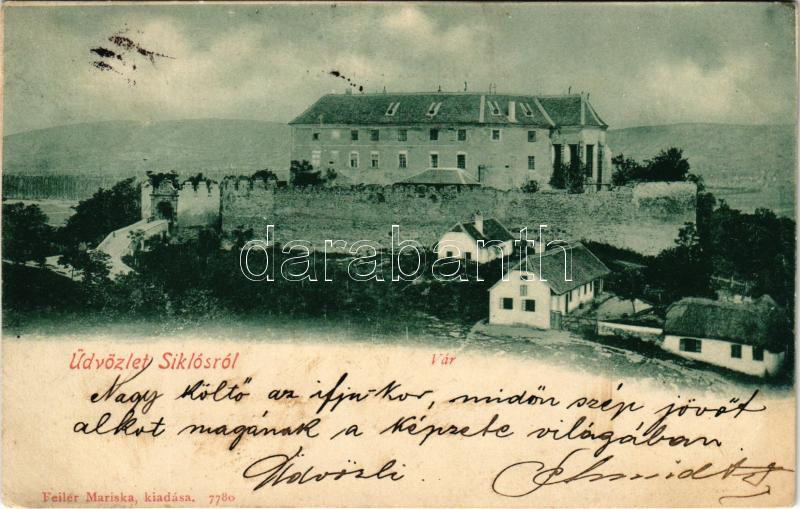 darabanth.com
Üdvözlet Siklósról
Vár
Nagy költő az ifju-kor, midőn szép jövőt
alkot magának a képzete világában.
Üdvözli
Feiler Mariska, kiadása. 7780